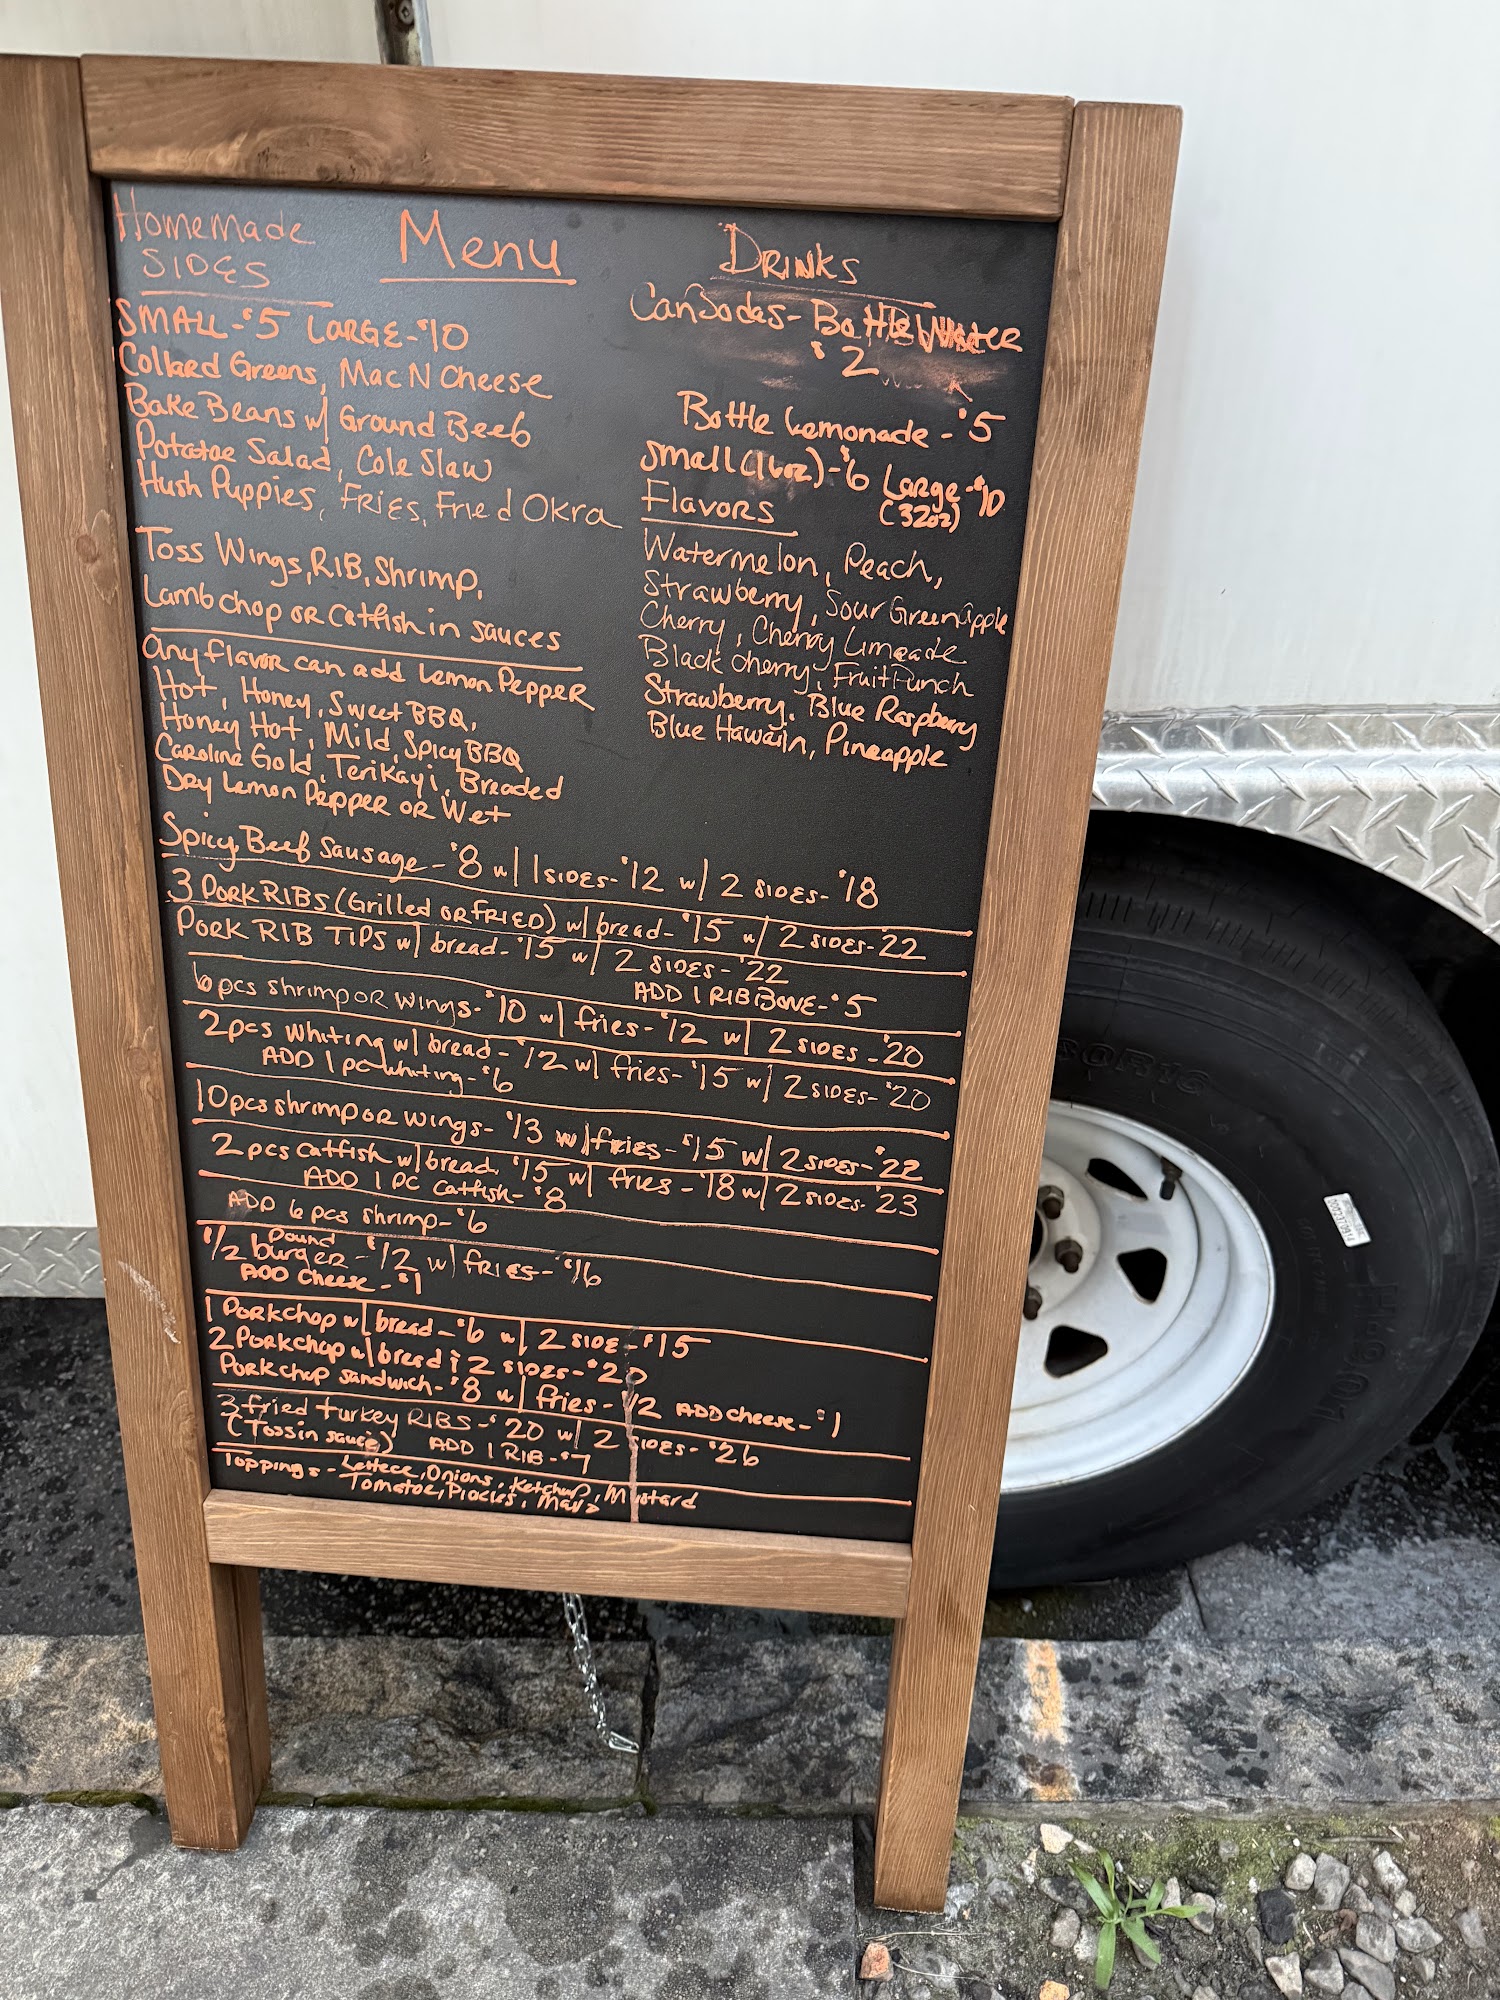 Homemade
SIDES
SMALL-$5 LARGE-$10
Collard Greens, Mac N Cheese
Bake Beans w/ Ground Beef
Potatoe Salad, Cole Slaw
Hush Puppies, FRIES, Fried Okra
Menu
DRINKS
Can Sodas- Bottle Water
$2
Bottle Lemonade - $5
Small (16oz)-$6 Large-$10
(32oz)
Flavors
Watermelon, Peach,
Strawberry, Sour Green apple
Cherry, Cherry Limeade
Black cherry, Fruit Punch
Strawberry, Blue Raspberry
Blue Hawaiin, Pineapple
Toss Wings, RIB, Shrimp,
Lamb chop OR Catfish in sauces
Any flavor can add Lemon Pepper
Hot, Honey, Sweet BBQ,
Honey Hot, Mild, Spicy BBQ
Caroline Gold, Terikayi, Breaded
Dry Lemon Pepper OR Wet
Spicy Beef Sausage - $8 w/ 1 SIDES- $12 w/ 2 SIDES- $18
3 PORK RIBS (Grilled OR FRIED) w/ bread- $15 w/ 2 SIDES- 22
PORK RIB TIPS w/ bread- $15 w/ 2 SIDES- $22
ADD 1 RIB BONE- $5
6 pcs shrimp OR wings- $10 w/ fries- $12 w/ 2 SIDES - $20
2 pcs whiting w/ bread - $12 w/ fries- $15 w/ 2 SIDES- $20
ADD 1 pc whiting- $6
10 pcs shrimp OR wings- $13 w/ fries- $15 w/ 2 SIDES- $22
2 pcs catfish w/ bread, $15 w/ fries - $18 w/ 2 SIDES- $23
ADD 1 PC Catfish- $8
ADD 6 pcs shrimp- $6
Pound
1/2 burger - $12 w/ FRIES- $16
ADD Cheese - $1
1 Porkchop w/ bread- $6 w/ 2 SIDE - $15
2 Porkchop w/ bread & 2 SIDES- $20
Pork chop sandwich- $8 w/ fries- $12 ADD cheese- $1
3 fried turkey RIBS - $20 w/ 2 SIDES- $26
(Toss in sauce) ADD 1 RIB - $7
Toppings - Lettece, Onions, Ketchup, Mustard
Tomatoe, Pickles, Mayo